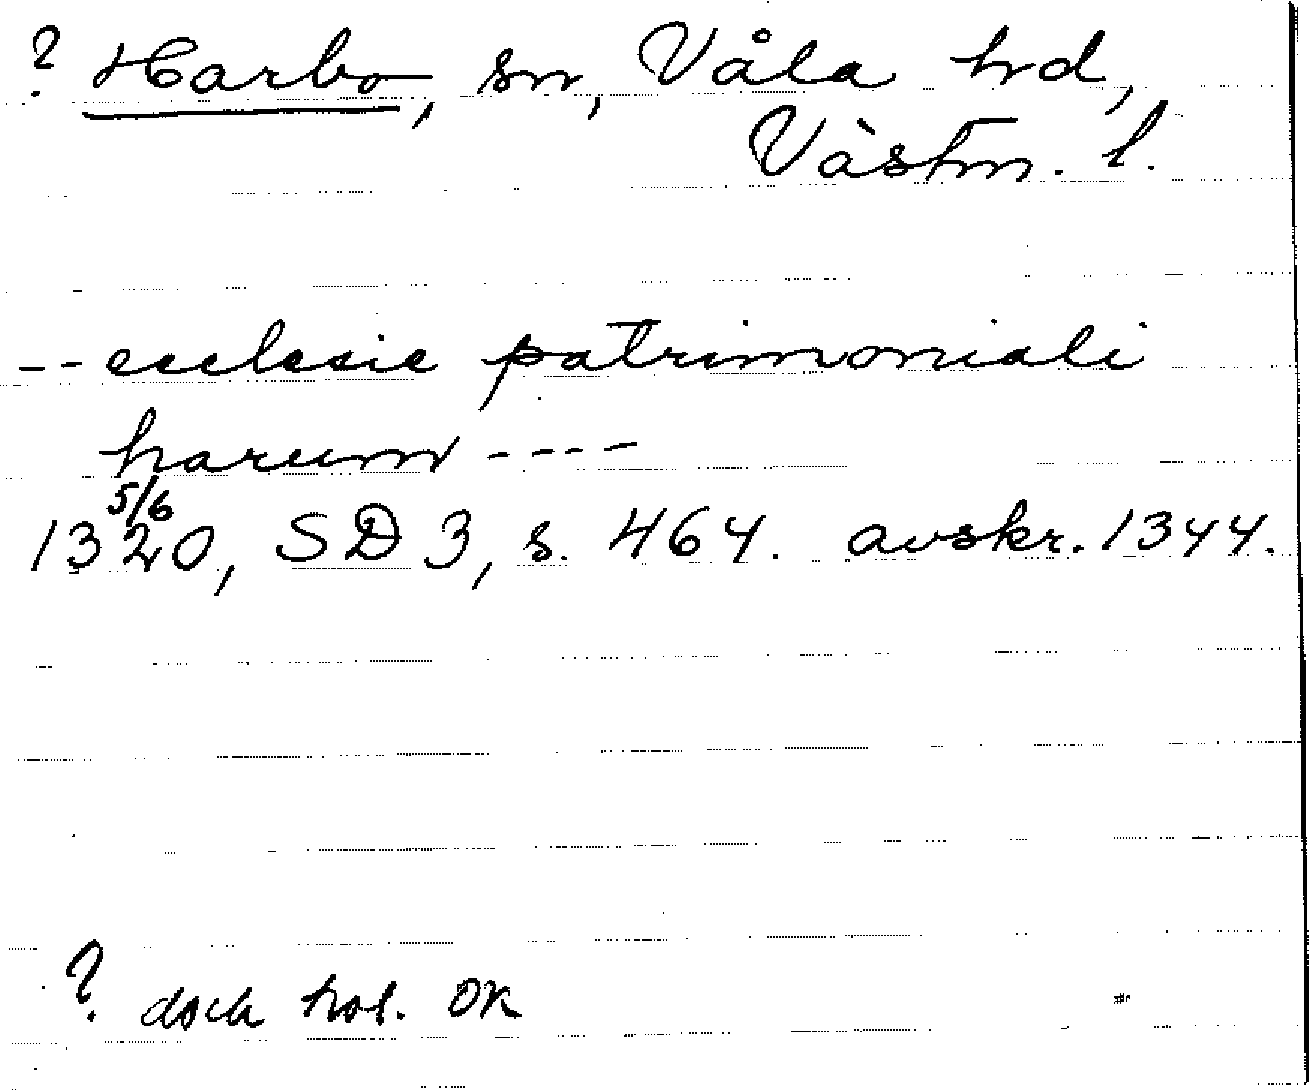 ? Harbo, sn, Våla hd,
Västm. l.
-- ecclesie patrimoniali
harum ----
5/6
1320, SD 3, s. 464. avskr. 1344.
? dock